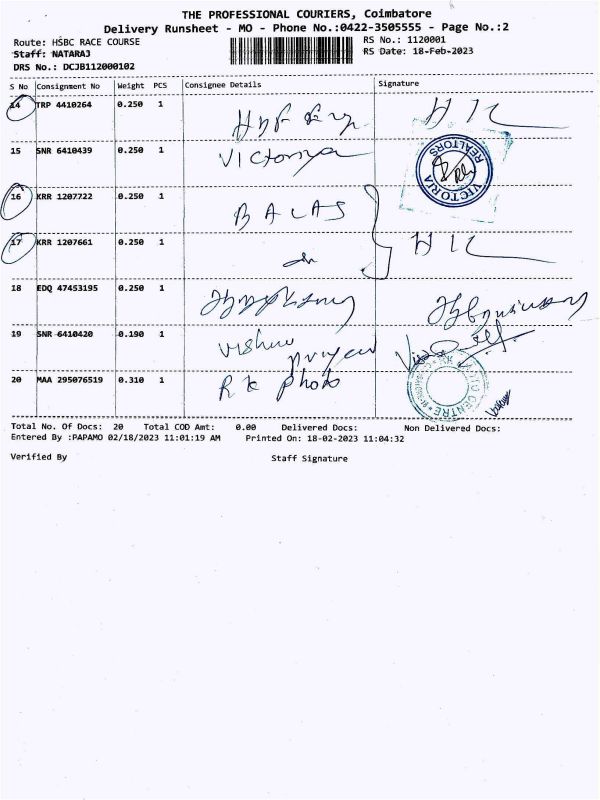 THE PROFESSIONAL COURIERS, Coimbatore
Delivery Runsheet - MO - Phone No.:0422-3505555 - Page No.:2
Route: HSBC RACE COURSE
RS No.: 1120001
Staff: NATARAJ
RS Date: 18-Feb-2023
DRS No.: DCJB112000102
S No Consignment No Weight PCS Consignee Details Signature
14 TRP 4410264 0.250 1
15 SNR 6410439 0.250 1 Victoriya
VICTORIA REALTORS
16 KRR 1207722 0.250 1 BALAS
17 KRR 1207661 0.250 1
18 EDQ 47453195 0.250 1
19 SNR 6410420 0.190 1 Vishnu
20 MAA 295076519 0.310 1 RK photo
CENTRE
Total No. Of Docs: 20 Total COD Amt: 0.00 Delivered Docs: Non Delivered Docs:
Entered By :PAPAMO 02/18/2023 11:01:19 AM Printed On: 18-02-2023 11:04:32
Verified By Staff Signature